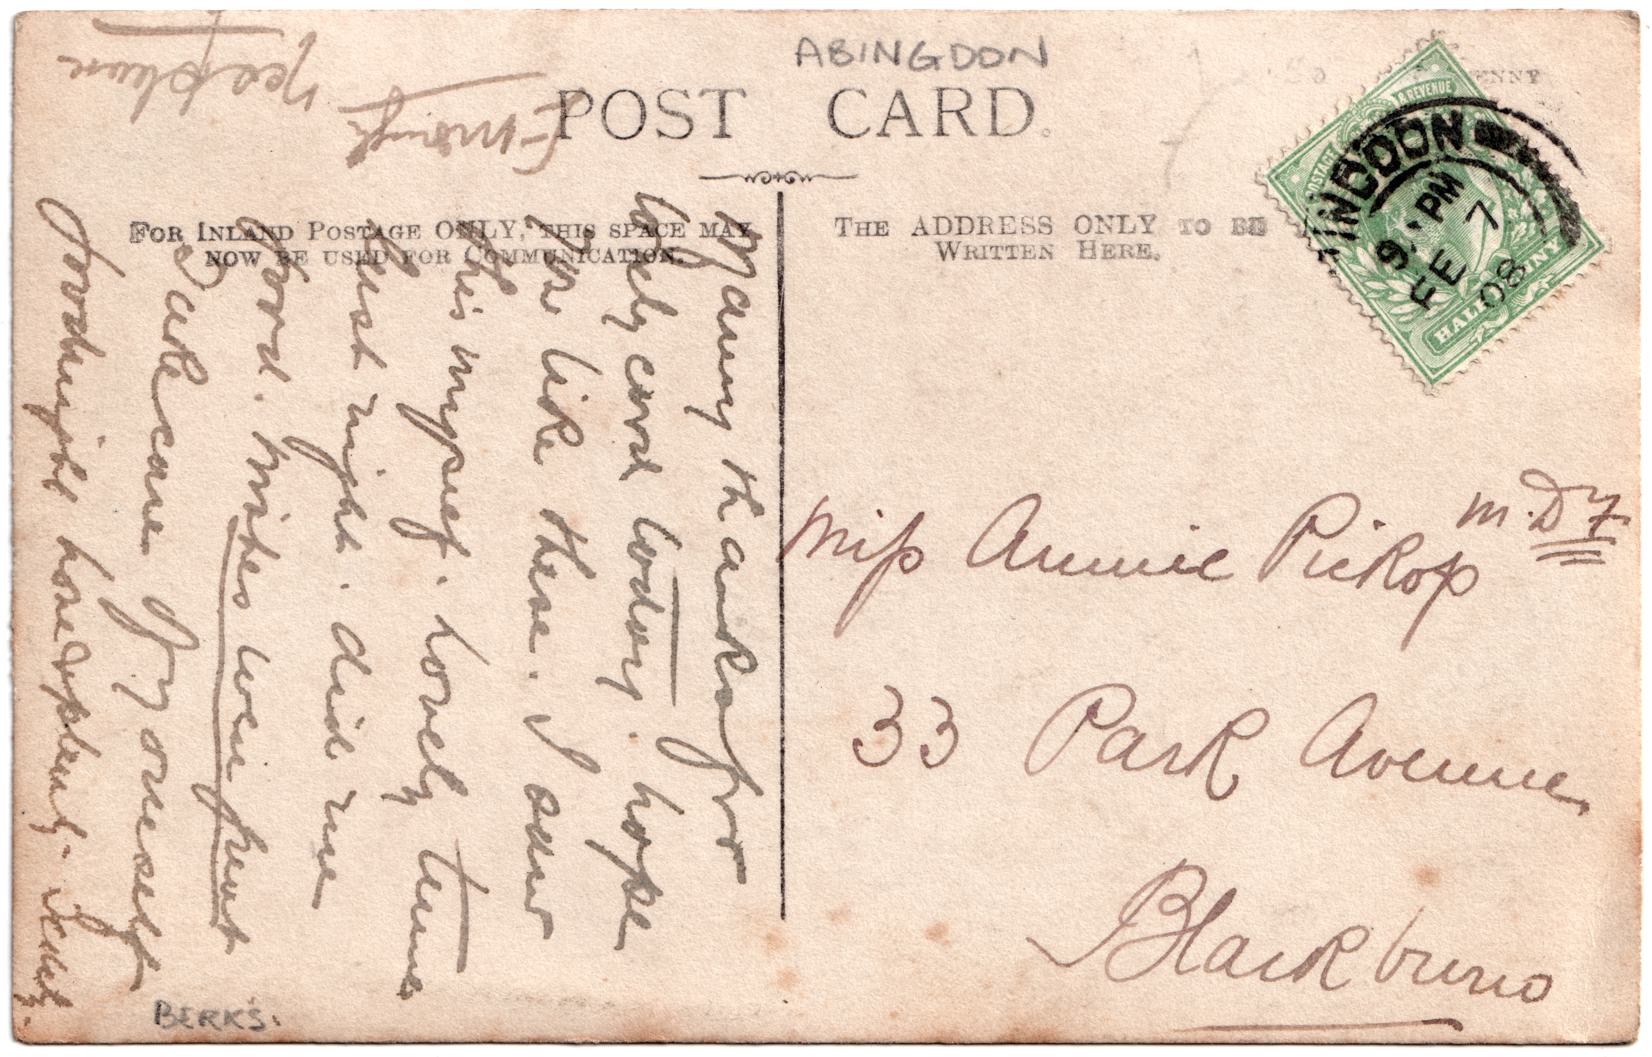 ABINGDON
POST CARD.
FOR INLAND POSTAGE ONLY, THIS SPACE MAY
NOW BE USED FOR COMMUNICATION.
THE ADDRESS ONLY TO BE
WRITTEN HERE.
ENNY
POSTAGE & REVENUE
HALF
NNY
INGDON
9. PM
FE 7
08
Many thanks for
lovely card today. hope
you like these. I saw
this myself. lovely time
last night. did me
good.
Take care of yourself
Goodnight
Miss Annie Pickop
M.D.Y
33 Park Avenue,
Blackburn
BERKS.